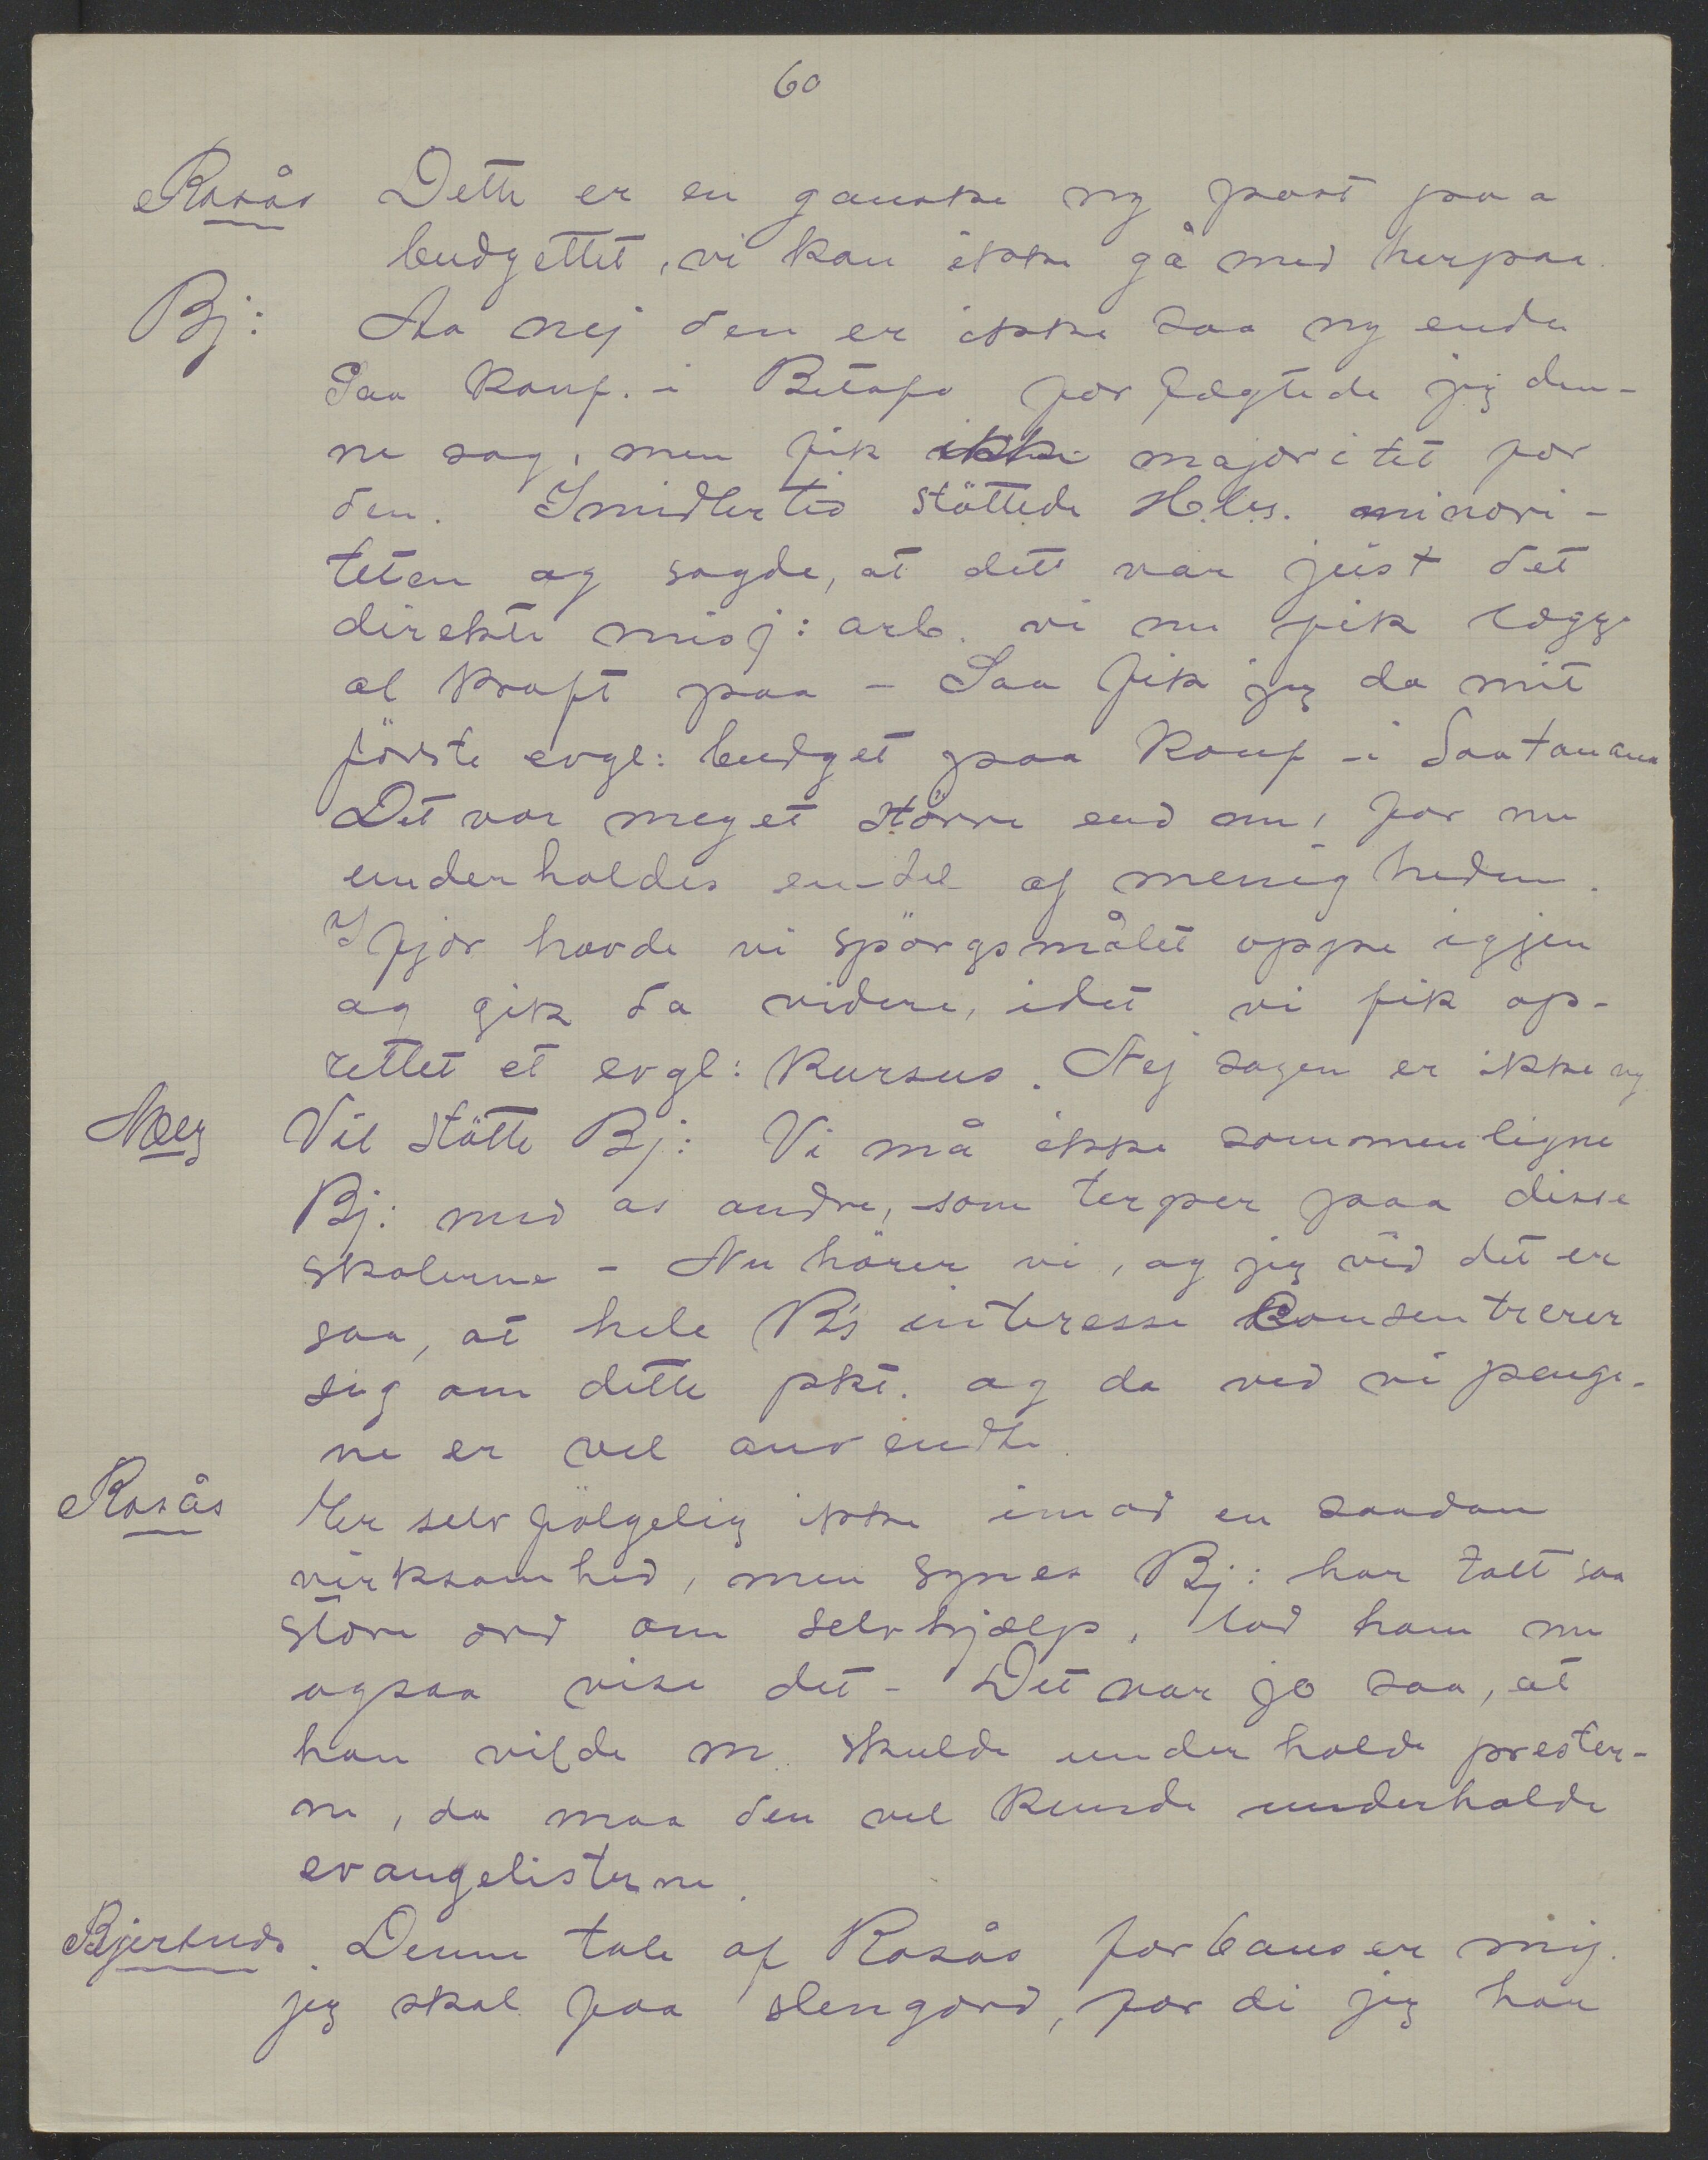 60
Rosås Dette er en ganske ny post paa
budgettet, vi kan ikke gå med herpaa.
Bj: Aa nej den er ikke saa ny enda
Paa Konf. i Betafo forfægtede jeg den-
ne sag, men fik ikke majoritet for
den. Imidlertid støttede H.b.s. minori-
teten og sagde, at dett var just det
direkte misj: arb. vi nu fik lægge
al kraft paa - Saa fik jeg da mit
förste evgl: budget paa Konf - i Soatanana
Det var meget större end nu, for nu
underholdes en-del af menigheden.
I fjor havde vi spörgsmålet oppe igjen
og gik da videre, idet vi fik op-
rettet et evgl: Kursus. Nej sagen er ikke ny
Meeg Vil stötte Bj: Vi må ikke sammenligne
Bj: med os andre, som terper paa disse
skolerne - Nu hörer vi, og jeg vid det er
saa, at hele B's interesse konsentrerer
sig om dette pkt. og da ved vi penge-
ne er vel anvendte.
Rosås Er selvfölgelig ikke imod en saadan
virksomhed, men synes Bj: har talt saa
store ord om selvhjælp, lad ham nu
ogsaa vise det - Det var jo saa, at
han vilde m. skulde underholde prester-
ne, da maa den vel kunde underholde
evangelisterne.
Bjertnæs. Denne tale af Rosås forbauser mig.
jeg skal paa slengord, fordi jeg har